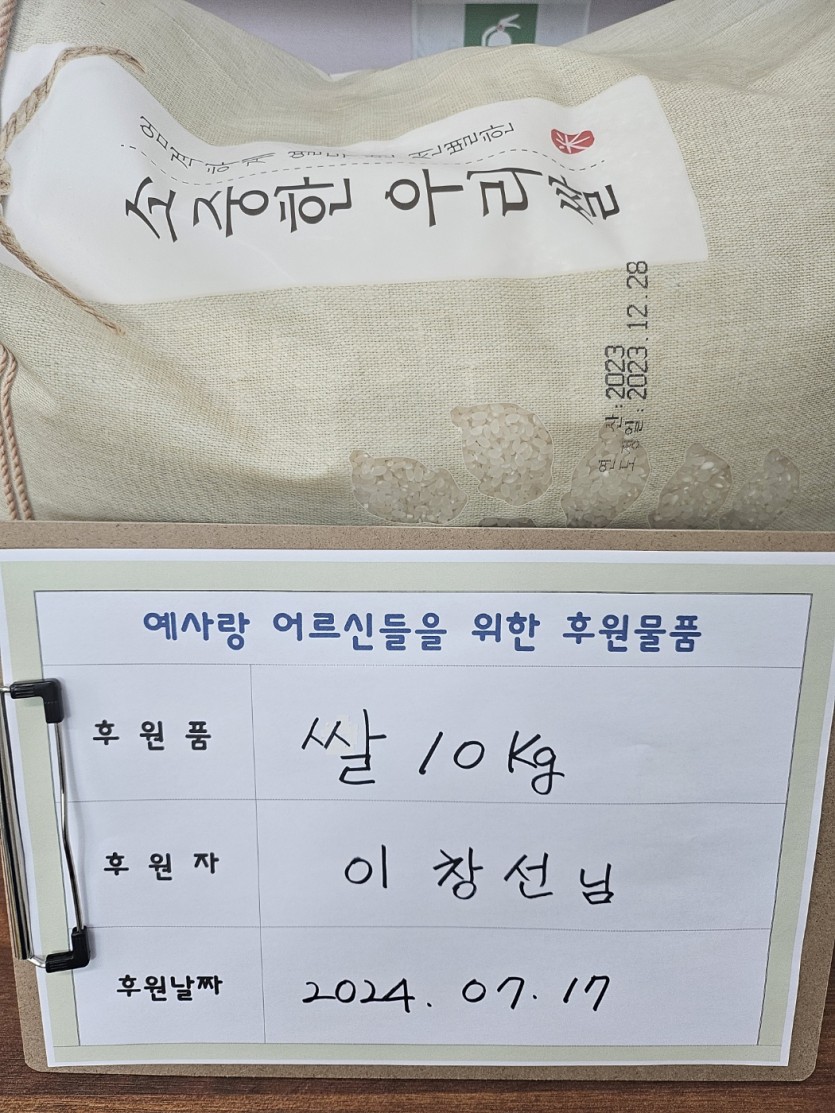 엄격하게 선별한
소중한 우리쌀
연산:2023
도정일:2023.12.28
예사랑 어르신들을 위한 후원물품
후원품 쌀 10kg
후원자 이창선님
후원날짜 2024.07.17